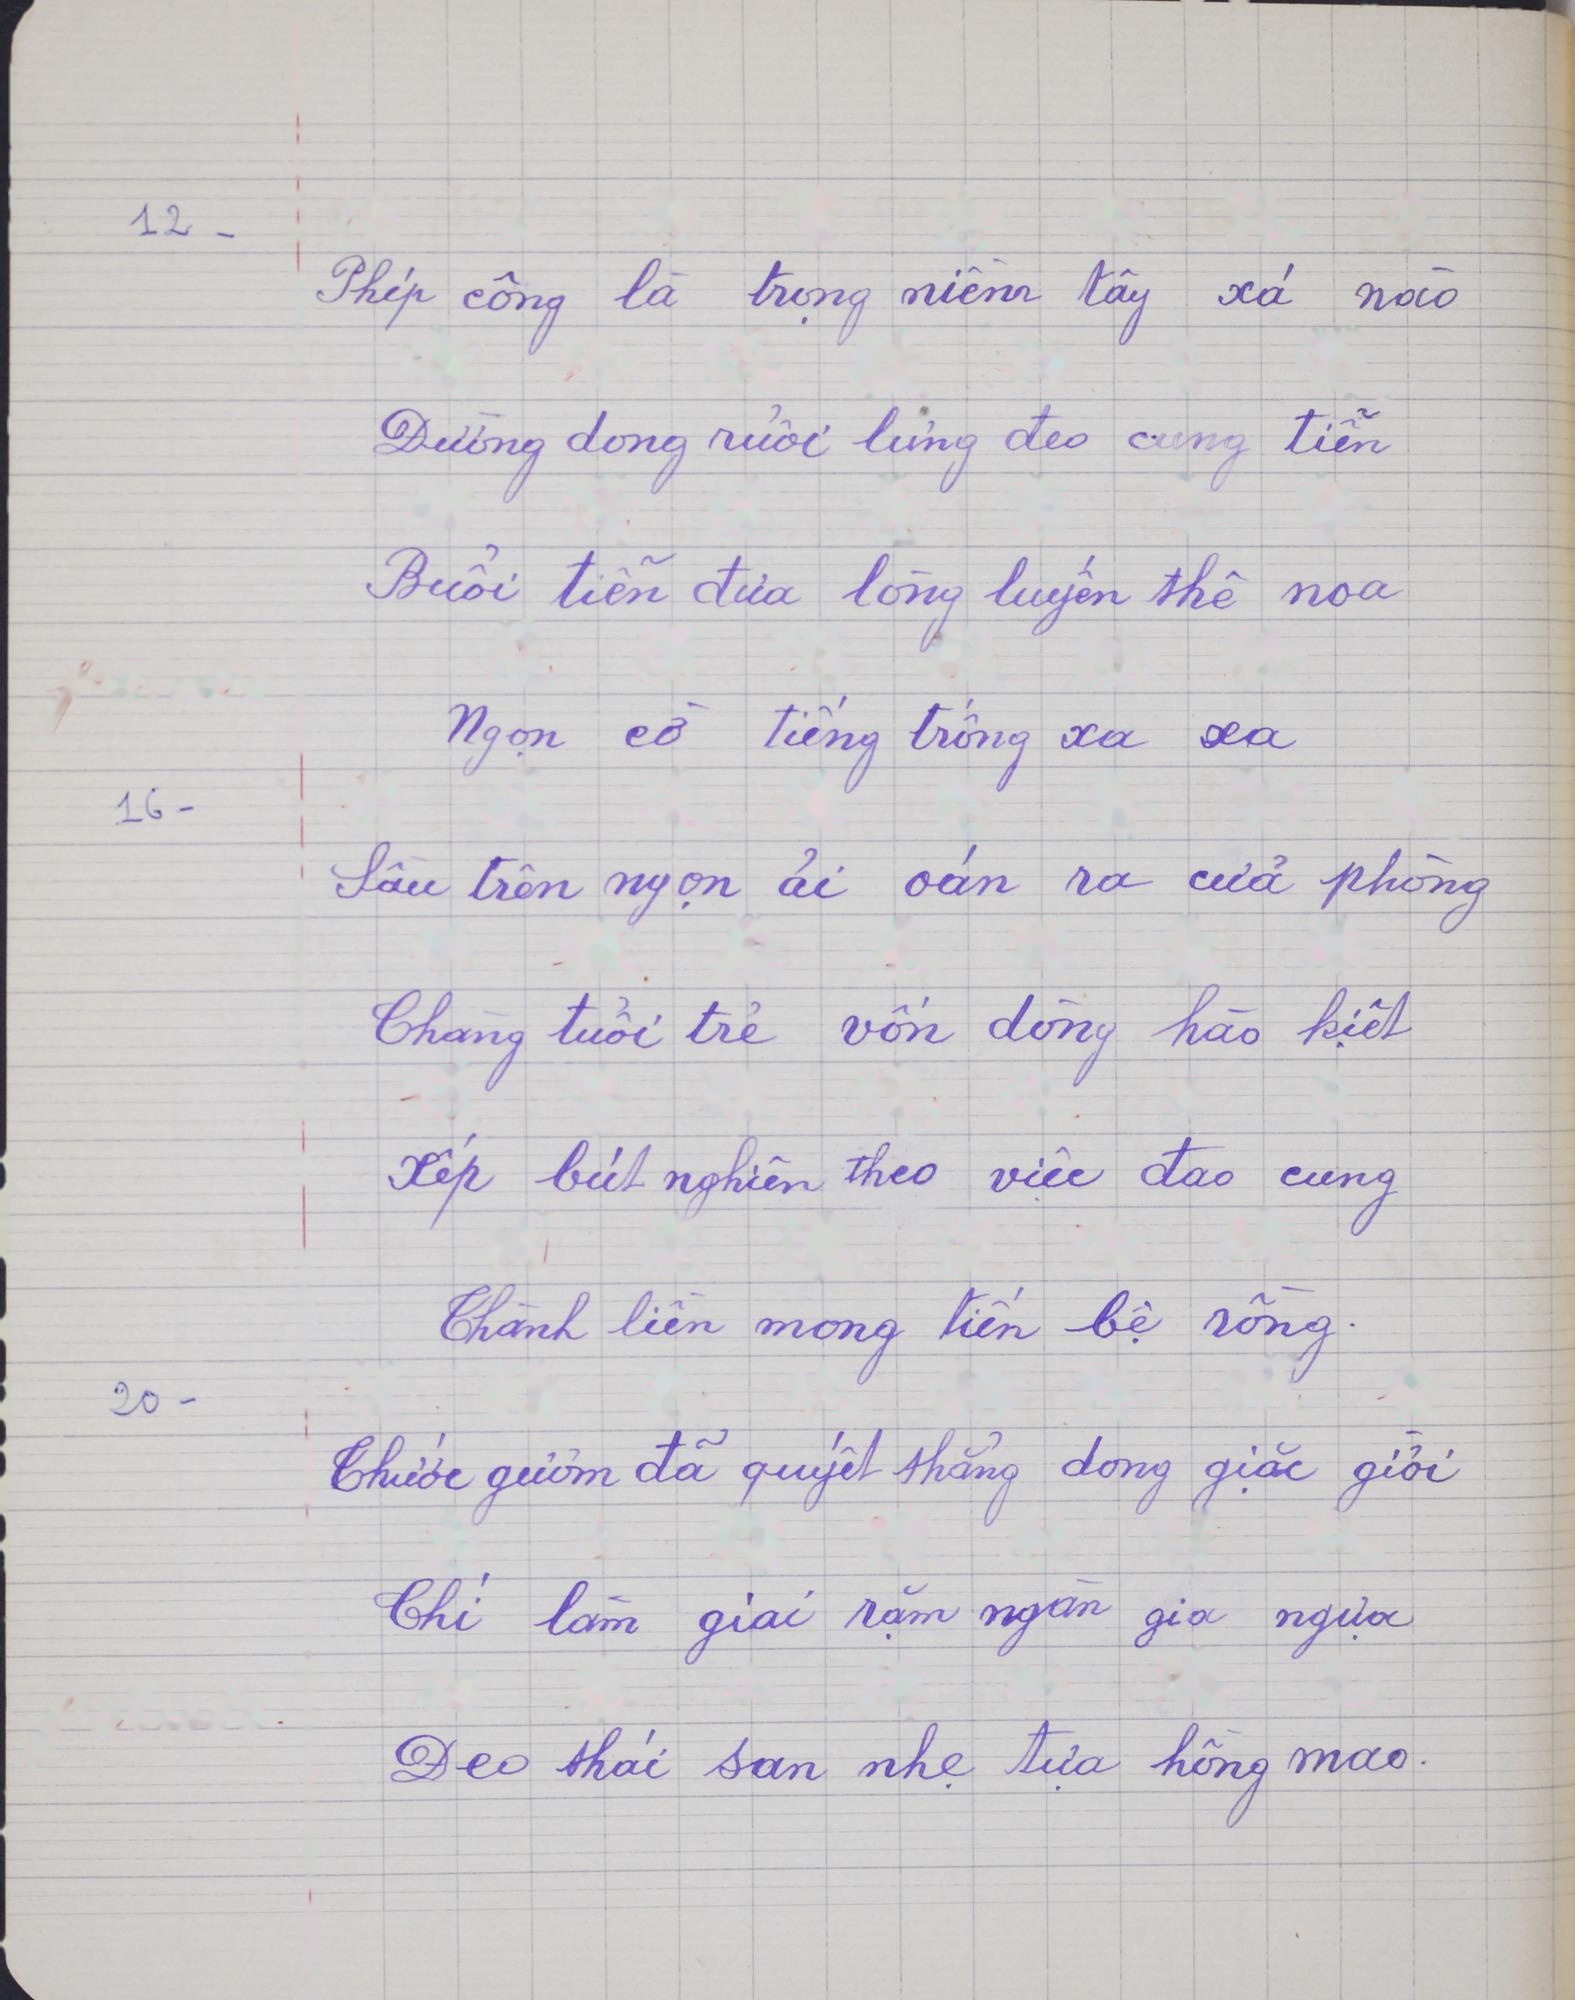 12 -
Phép công là trọng niềm tây xá nào
Đường dong ruổi lưng đeo cung tiễn
Buổi tiễn đưa lòng luyến thê noa
Ngọn cờ tiếng trống xa xa
16 -
Sầu trên ngọn ải oán ra cửa phòng
Chàng tuổi trẻ vốn dòng hào kiệt
Xếp bút nghiên theo việc đao cung
Thành liền mong tiến bệ rồng.
20 -
Thước gươm đã quyết thẳng dong giặc giời
Chí làm giai rặm ngàn gia ngựa
Deo thái san nhẹ tựa hồng mao.